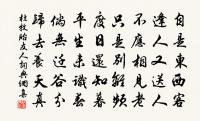 自是東西客
逢人又送人
不應相見老
只是別離頻
度日還知暮
平生未識春
倘無遷谷分
歸去養天真
杜牧貽友人詞典網集